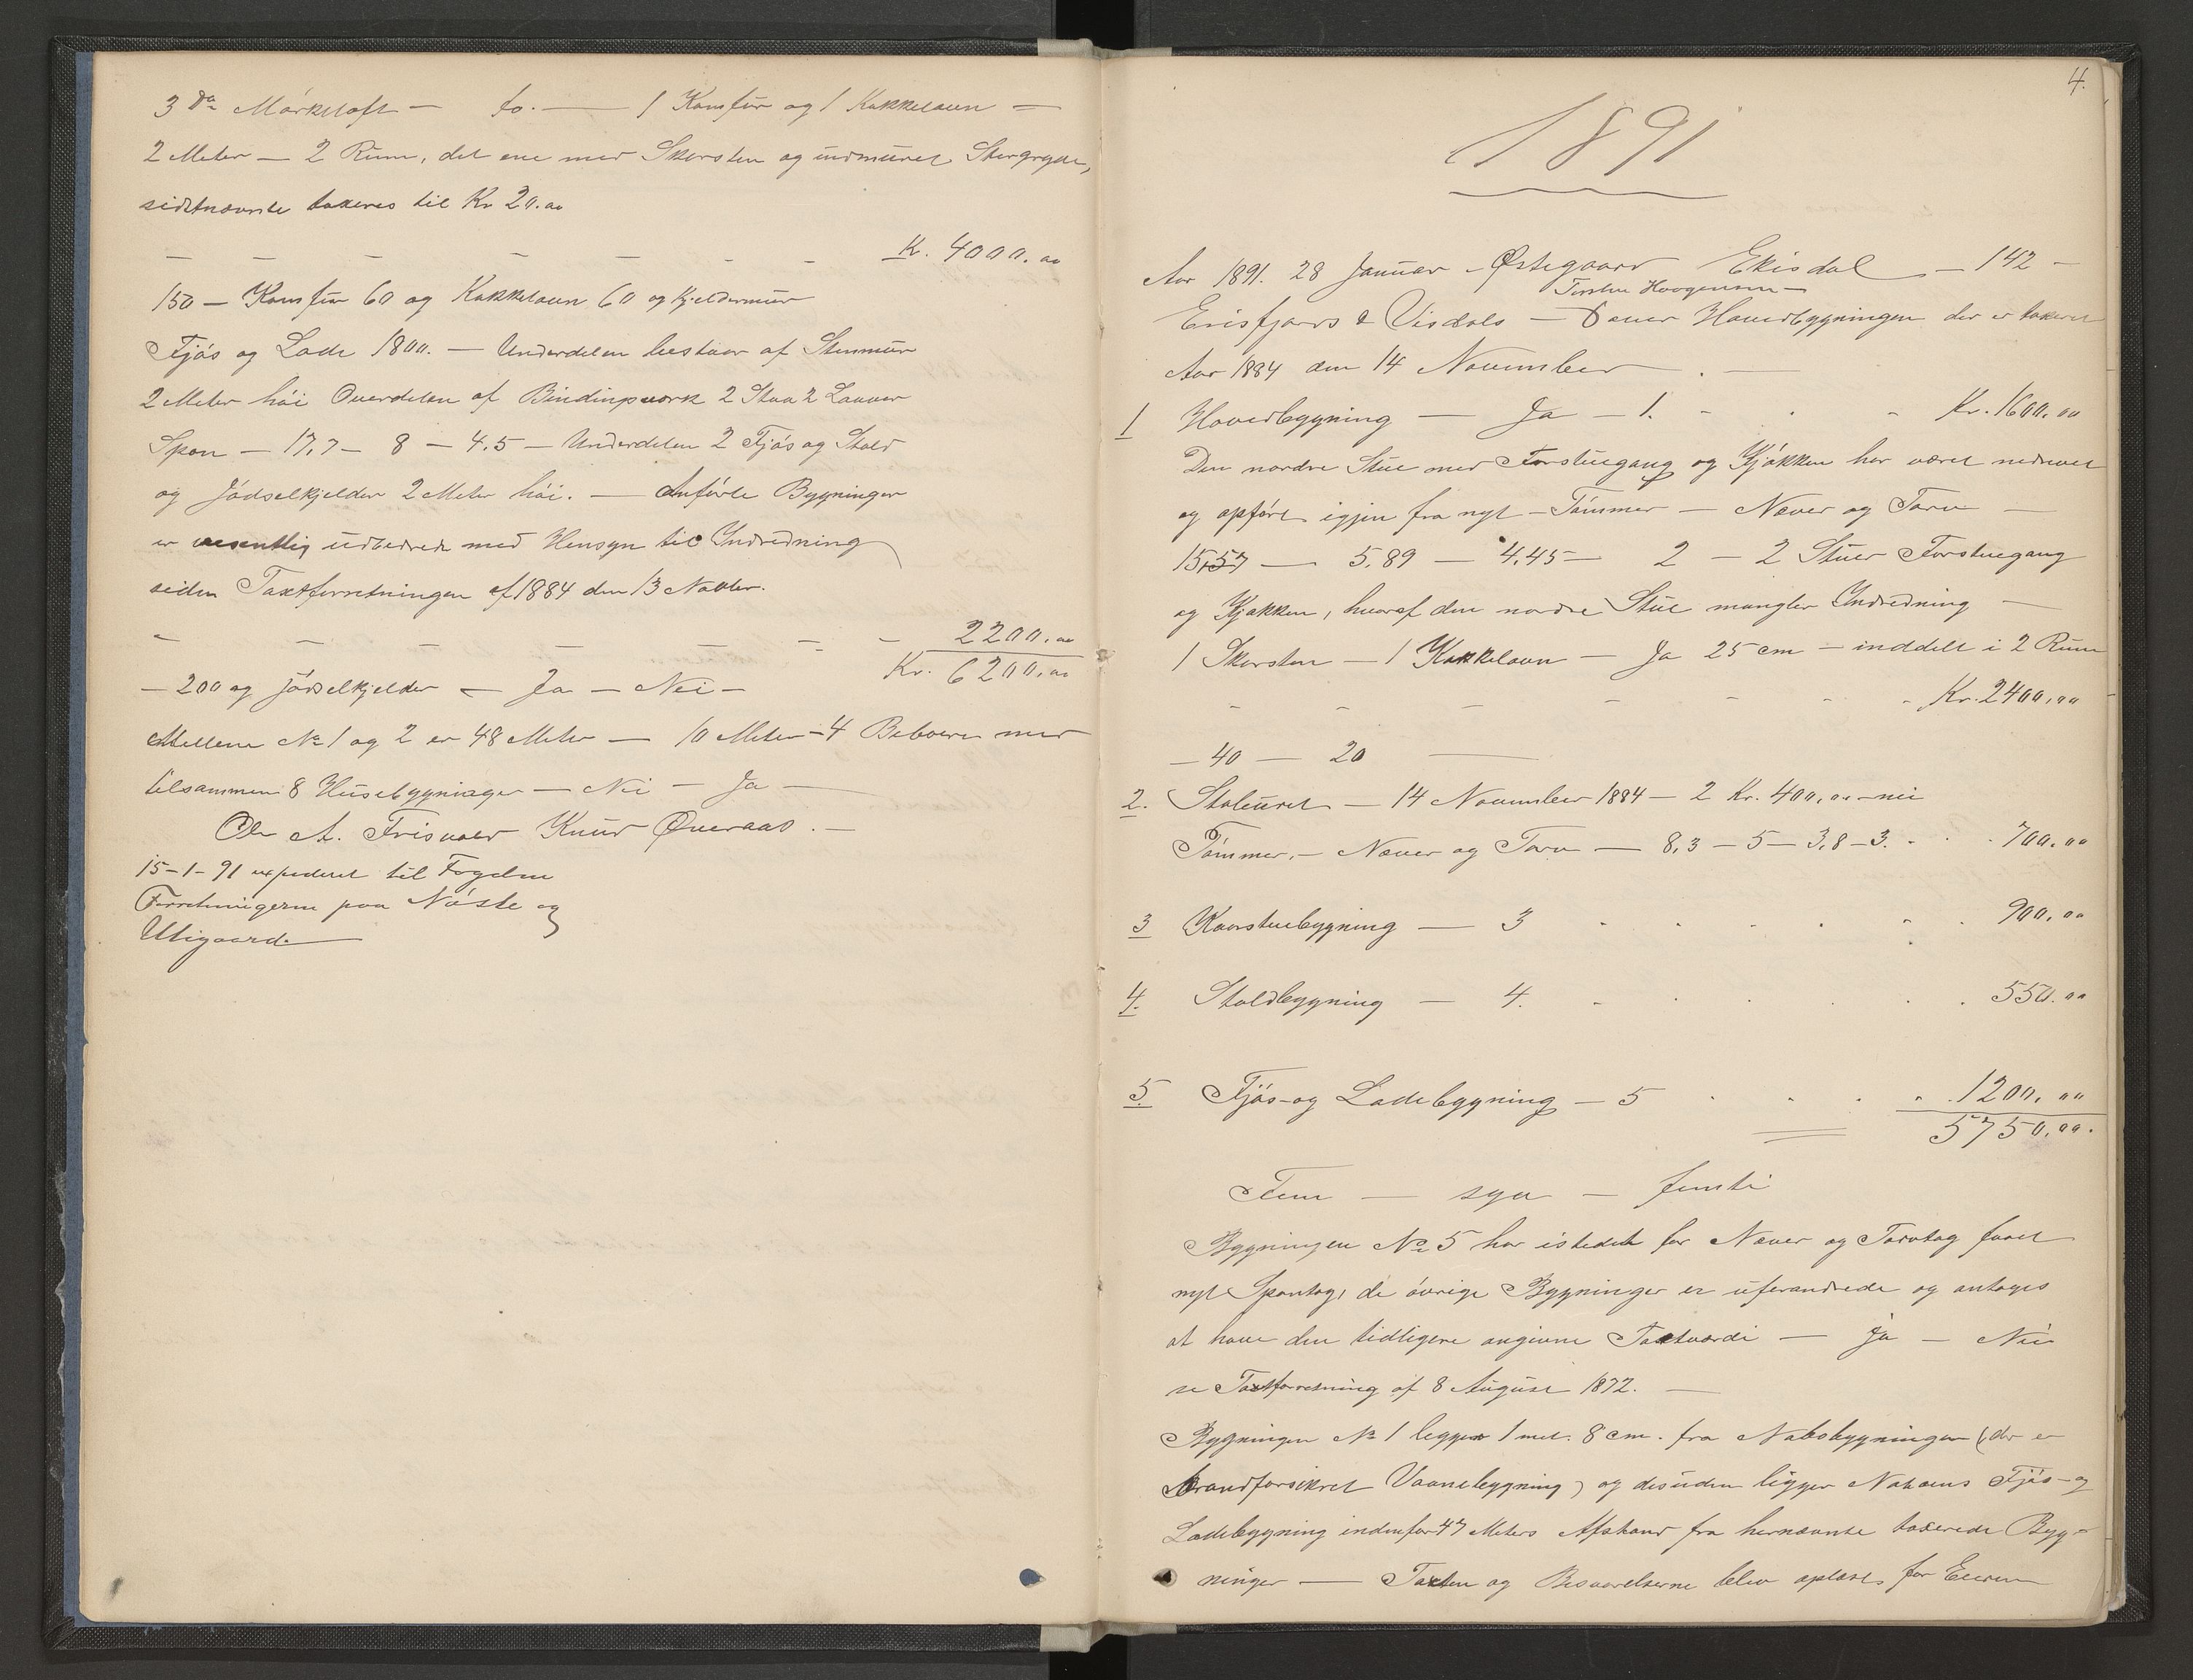 3 da Mörkeloft — to. — 1 Komfür og 1 Kakkelaun —
2 Meter — 2 Rum, det ene med Skorsten og indmüret Storgryde,
sidstnævnte taxeres til Kr 20.00
— — — — — — — Kr. 4000.00
150 — Komfür 60 og Kakkelaun 60 og Kjeldermür
Fjös og Lade 1800. — Underdelen bestaar af Stenmür
2 Meter höi Overdelen af Bindingsverk 2 Staa 2 Lauver
Spon — 17,7 — 8 — 4.5 — Underdelen 2 Fjös og Stald
og Jödselkjelder 2 Meter höi. — Anförte Bygninger
er væsentlig üdbedrede med Hensyn til Indredning
siden Taxtforretningen af 1884 den 13 Novbr.
— — — — — — 2200.00
Kr. 6200.00
— 200 og Jödselkjelder — Ja — Nei —
Mellem No 1 og 2 er 48 Meter — 10 Meter — 4 Beboere med
tilsammen 8 Hüsebygninger — Nei — Ja —
Ole A. Frisvold Knüd Øveraas. —
15-1-91 expederet til Fogden
Forretningerne paa Nöste og
Utigaard.
4.
1891
Aar 1891. 28 Januar - Østegaard Ekisdal — 142 —
Torsten Haagensen —
Erisfjords & Visdals — Søner Hovedbygningen der er taxeret
Aar 1884 den 14 November . —
1 Hovedbygning — Ja — 1. - . - Kr. 1600.00
Den nordre Stue med Forstuegang og Kjökken har været nedrevet
og opfört igjen fra nyt — Tömmer — Næver og Torv —
15,57 — 5.89 — 4,45 — 2 — 2 Stuer Forstuegang
og Kjøkken, hvoraf den nordre Stue mangler Indredning —
1 Skorsten — 1 Kakkelovn — Ja 25 cm — inddelt i 2 Rum
- - - - - - Kr. 2400,00
— 40 — 20 —
2. Stabüret — 14 November 1884 — 2 Kr. 400,00 - nei
Tömmer, — Næver og Torv — 8,3 — 5 — 3,8 — 3. . . . 700,00
3 Kaarstuebygning — 3 . . . . . 900,00
4. Staldbygning — 4. . . . . . 550.00
5. Fjös- og Ladebygning — 5 . . . . 1200,00
5750,00.
Fem — syv — femti
Bygningen No 5 har istedet for Næver og Torvtag faaet
nyt Spontag, de övrige Bygninger er uforandrede og antages
at have den tidligere angivne Taxtværdi — Ja — Nei
se Taxtforretning af 8 August 1872. —
Bygningen No 1 ligger 1 met. 8 cm. fra Nabobygningen (der er
brandforsikret Vaanebygning) og desuden ligger Naboens Fjös- og
Ladebygning indenfor 47 Meters Afstand fra hernævnte taxerede Byg-
ninger — Taxten og Besvarelserne blev oplæst for Eieren